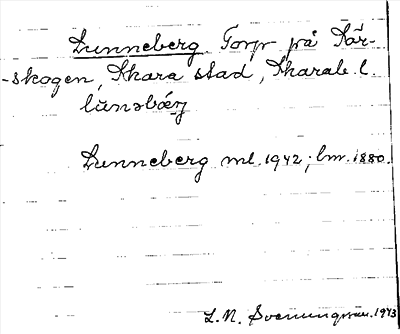 Lunneberg. Torp på Kår-
-skogen, Skara stad, Skarab. l.
lu̇nəbærj
Lunneberg ml. 1942; lm. 1880.
L. N. Svenungsson. 1943